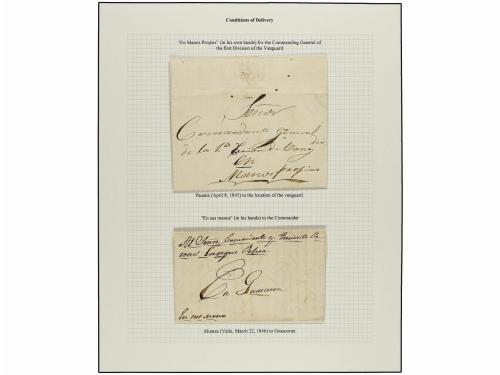 Conditions of Delivery
"En Manos Propias" (in his own hands) for the Commanding General of
the first Division of the Vanguard
Señor
Comandante general
de la 1ª
en
Manos propias
Pasana (April 8, 1845) to the location of the vanguard
"En sus manos" (in his hands) to the Commander
Al Señor Comandante y
En Guascoran
En sus manos
Alianza (Valle, March 22, 1846) to Goascoran.